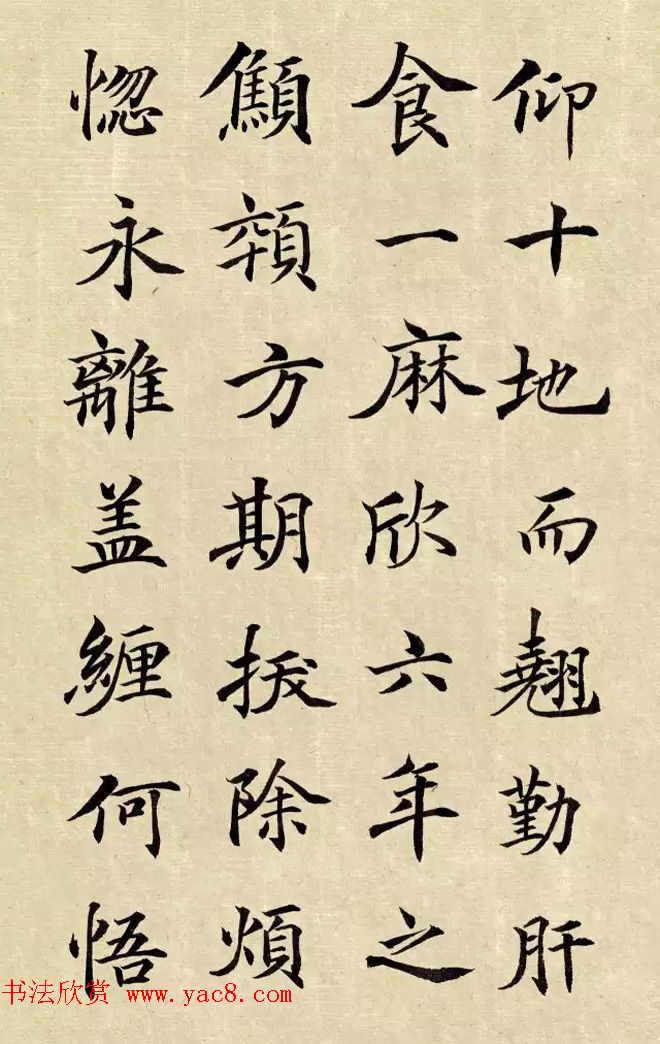 仰十地而翹勤肝
食一麻欣六年之
顦顇方期拔除煩
惚永離盖纏何悟
书法欣赏 www.yac8.com